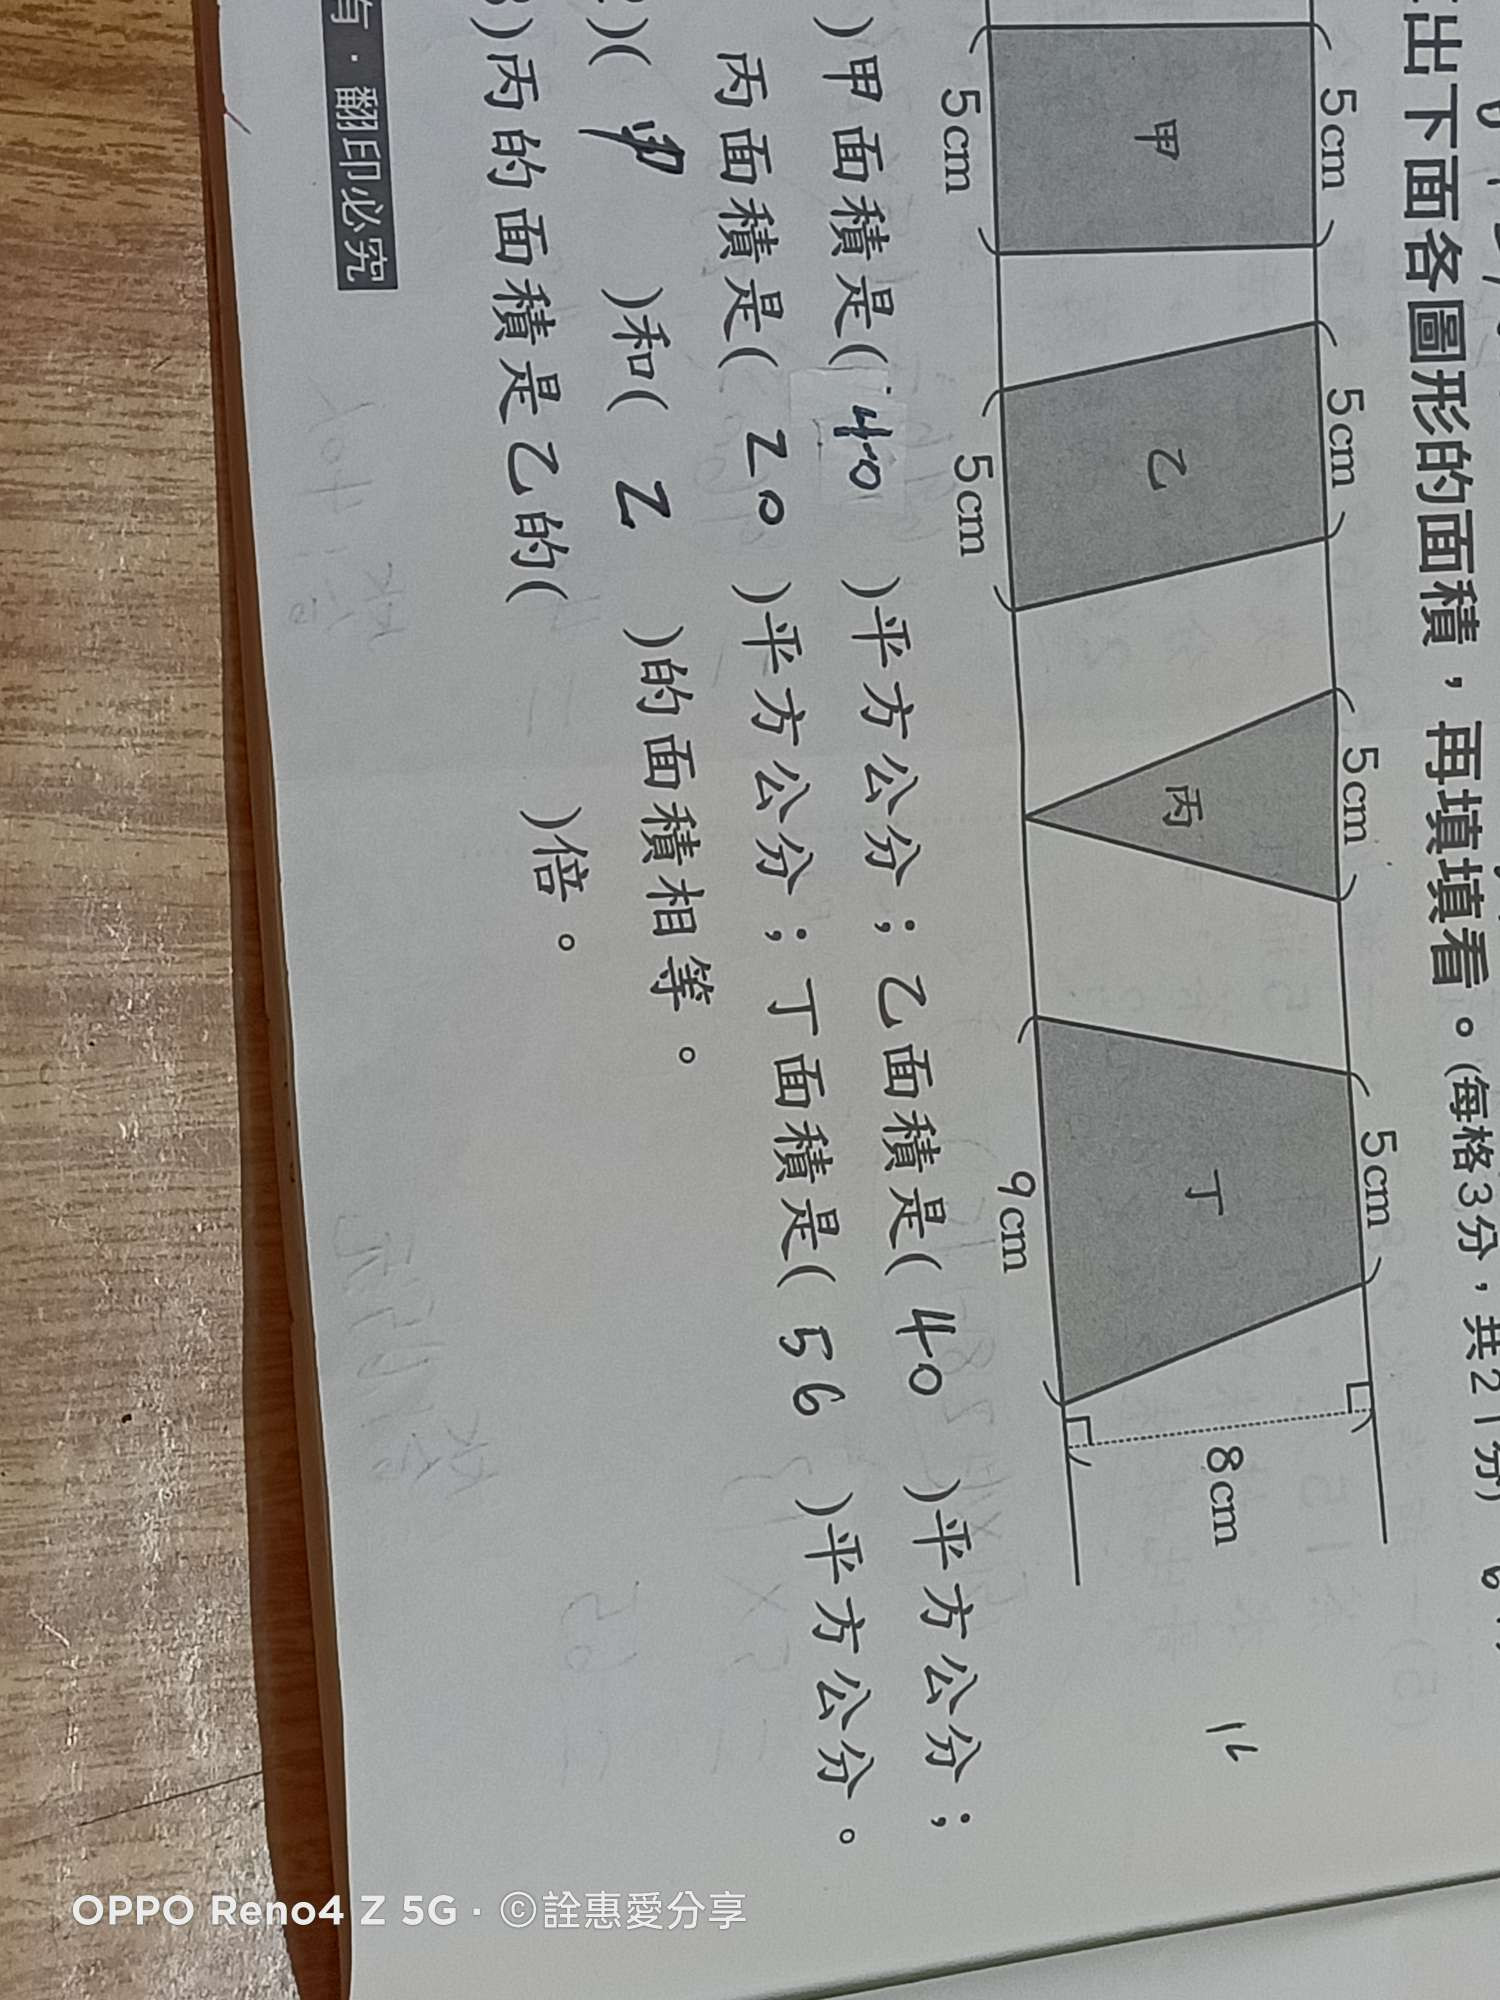 出下面各圖形的面積，再填填看。(每格3分，共21分)
5cm 5cm 5cm 5cm
甲 乙 丙 丁 8cm
5cm 5cm 9cm
16
)甲面積是( 40 )平方公分；乙面積是( 40 )平方公分；
丙面積是( 20 )平方公分；丁面積是( 56 )平方公分。
)( 甲 )和( 乙 )的面積相等。
)丙的面積是乙的( )倍。
有・翻印必究
OPPO Reno4 Z 5G・©詮惠愛分享